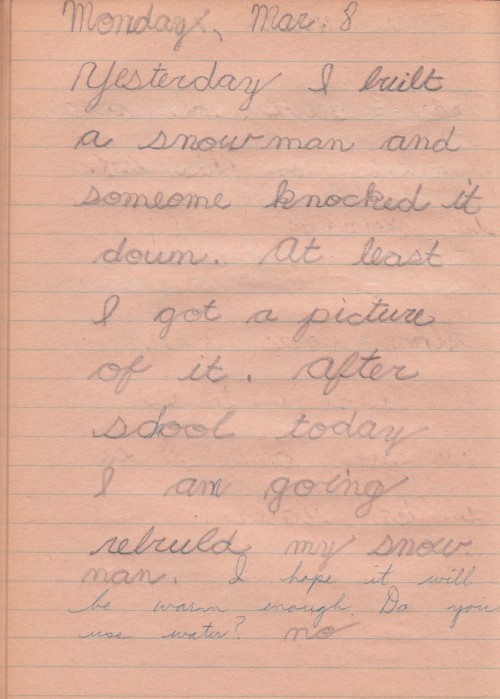 Monday, Mar. 8
Yesterday I built
a snowman and
someome knocked it
down. At least
I got a picture
of it. After
school today
I am going
rebuild my snow
man. I hope it will
be warm enough. Do you
use water? no